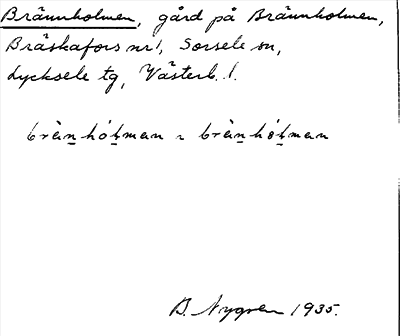 Brännholmen, gård på Brännholmen,
Bräskafors nr 1, Sorsele sn,
Lycksele tg, Västerb. l.
brän̲hó̀l̲man ~ brän̲hól̲man
B. Nygren 1935.